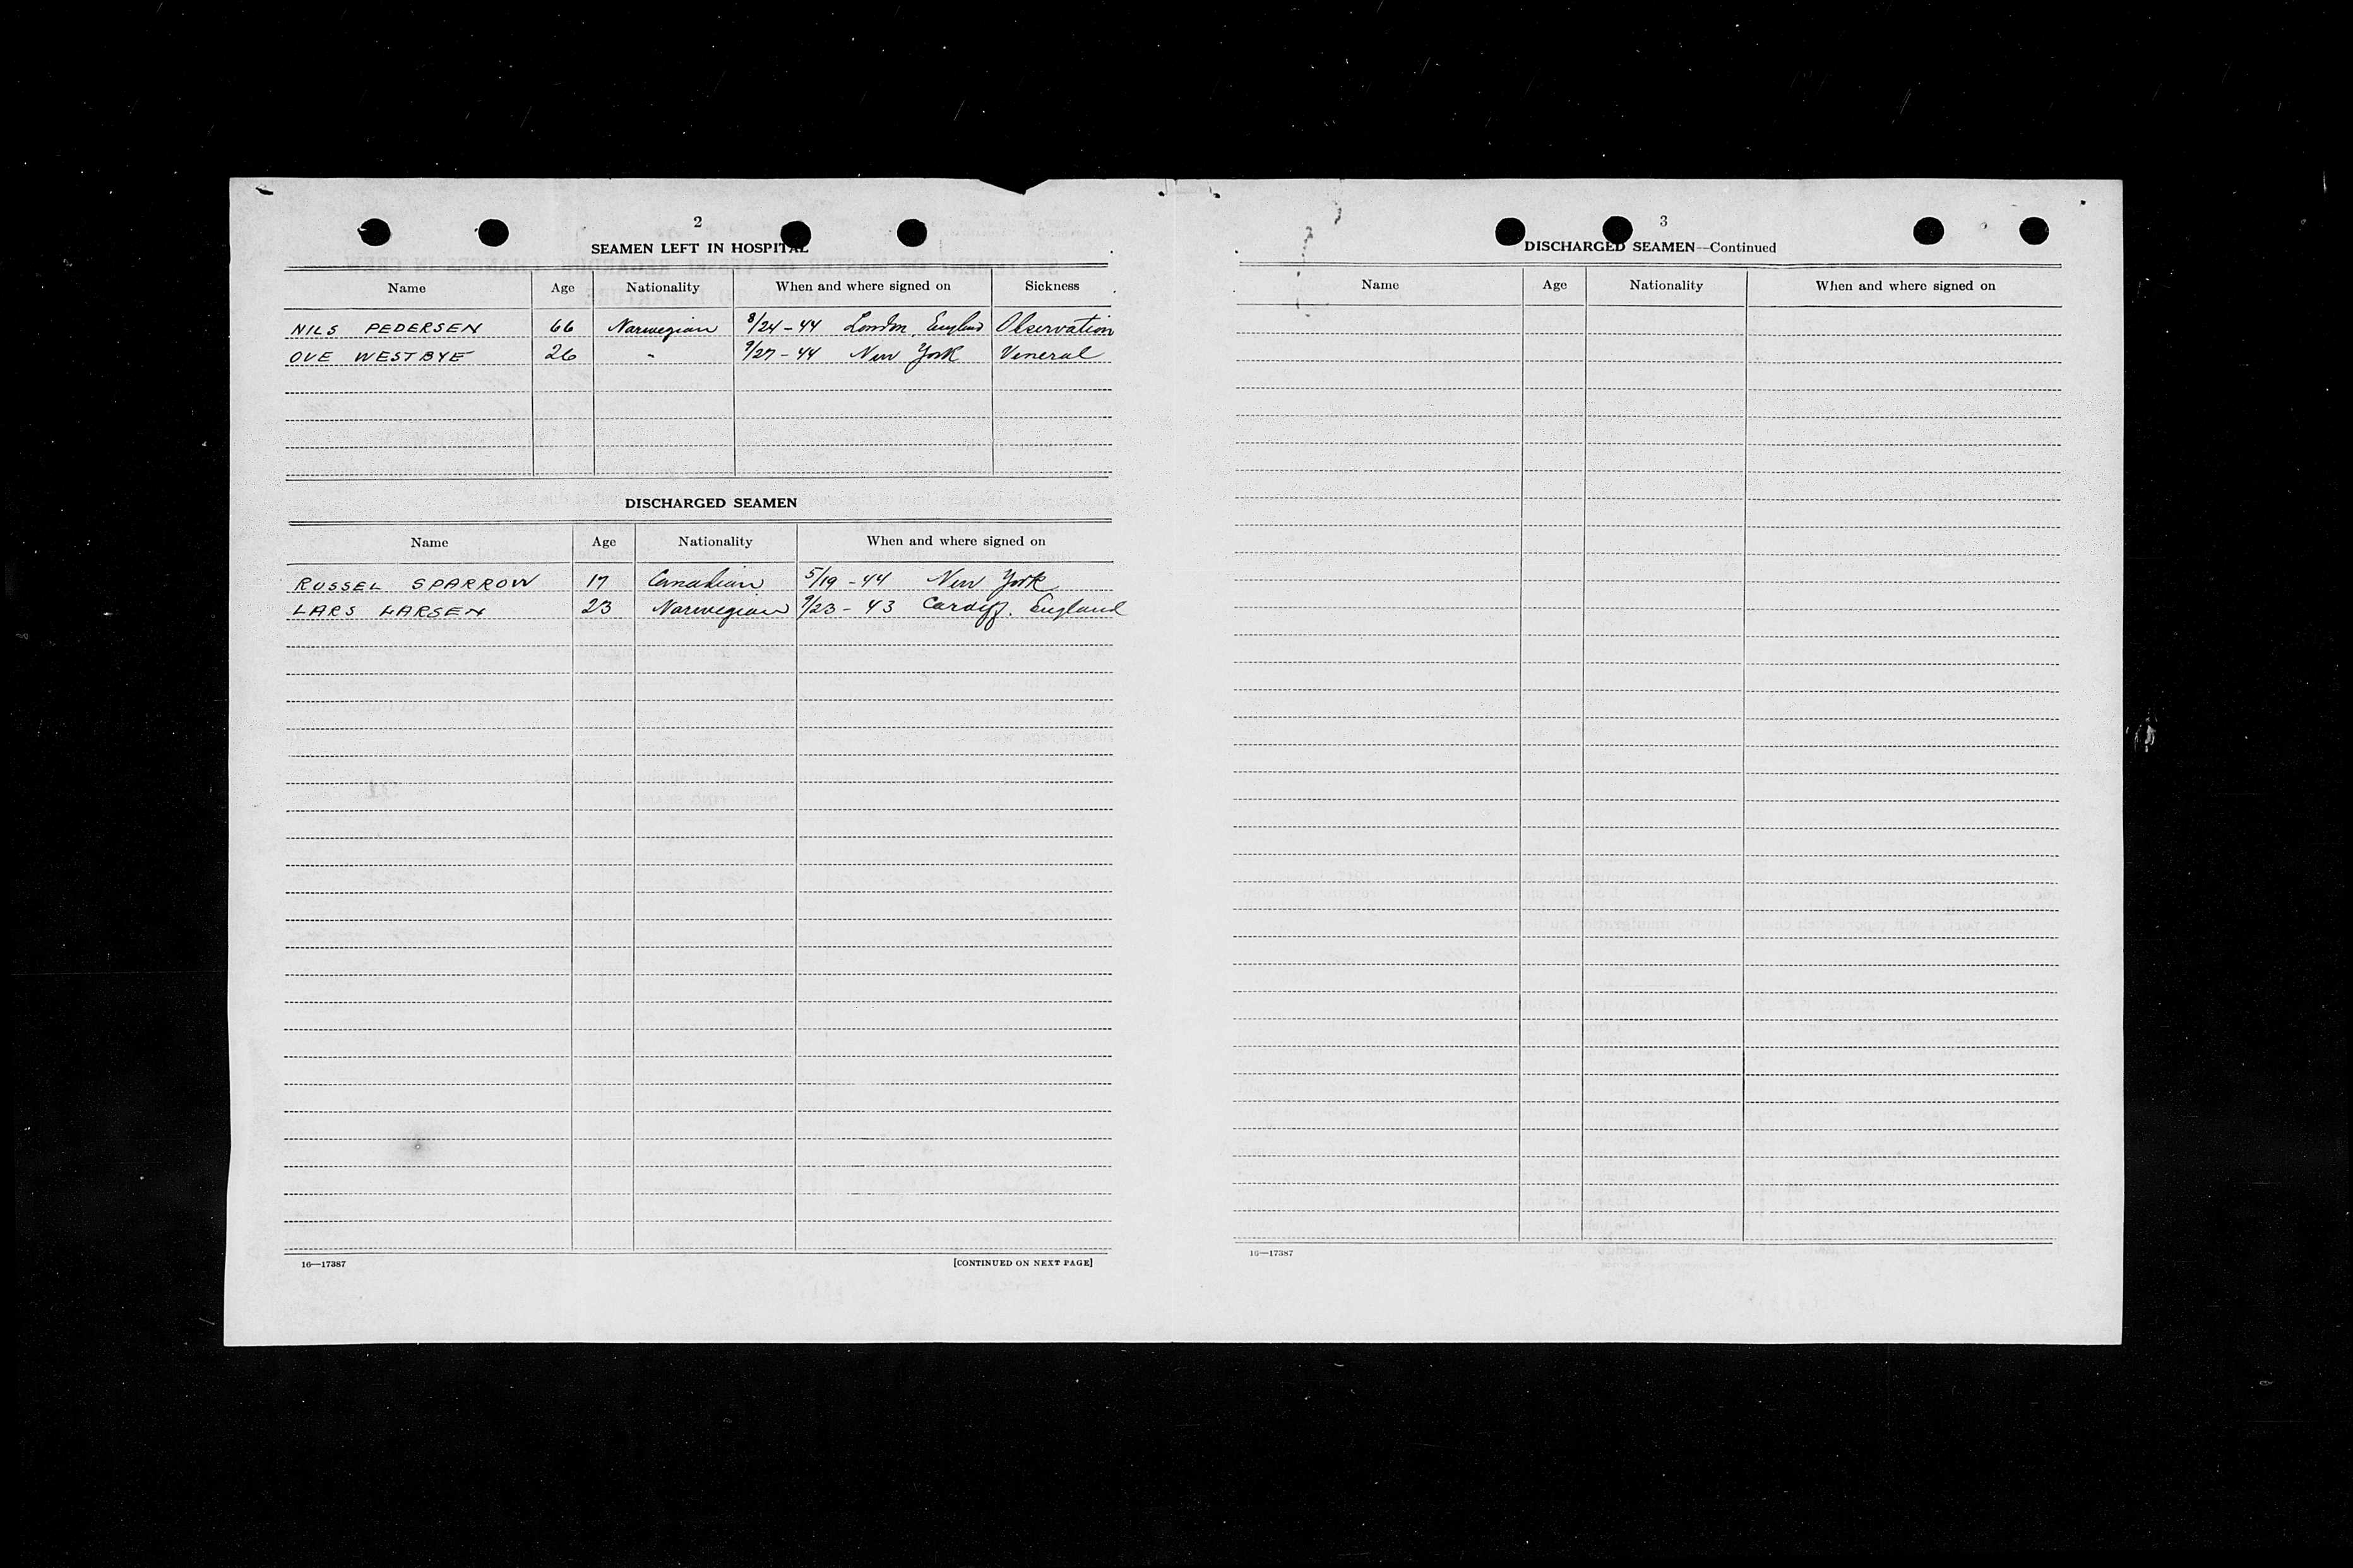 2
SEAMEN LEFT IN HOSPITAL
Name Age Nationality When and where signed on Sickness
NILS PEDERSEN 66 Norwegian 8/24-44 London, England Observation
OVE WESTBYE 26 " 9/27-44 New York Veneral
DISCHARGED SEAMEN
Name Age Nationality When and where signed on
RUSSEL SPARROW 17 Canadian 5/19-44 New York
LARS LARSEN 23 Norwegian 9/23-43 Cardiff, England
16—17387 [CONTINUED ON NEXT PAGE]
3
DISCHARGED SEAMEN—Continued
Name Age Nationality When and where signed on
16—17387